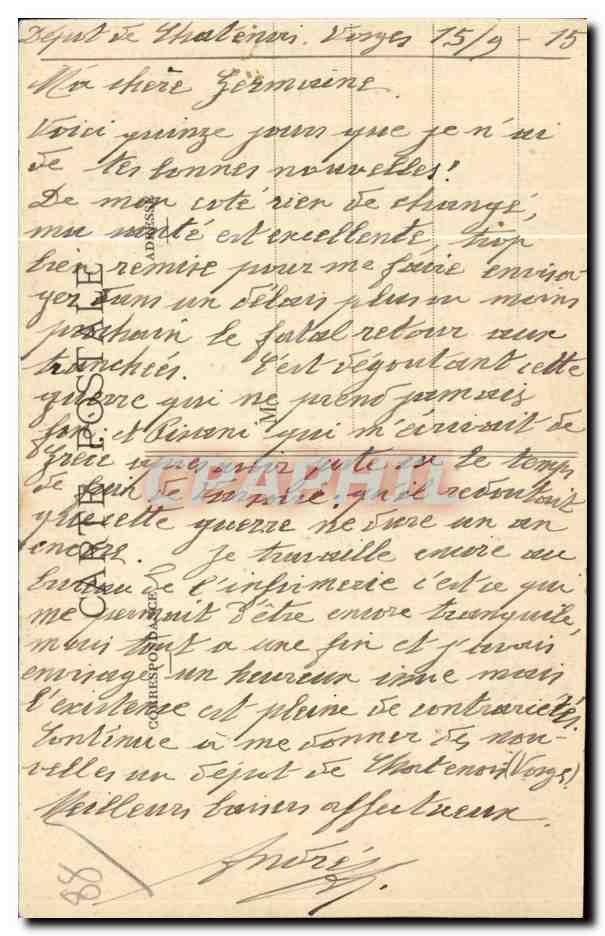 Dépot de Chatenois. Vosges 15/9 - 15
Ma chère Germaine.
Voici quinze jours que je n'ai
de tes bonnes nouvelles!
De mon coté rien de changé,
ma santé est excellente, trop
bien remise pour me faire envisa-
ger dans un délais plus ou moins
prochain le fatal retour aux
tranchées. C'est dégoutant cette
guerre qui ne prend jamais
fin, et qui m'écrivait de
le temps
de qu'il redoutait
que cette guerre ne dure un an
encore. Je travaille encore au
bureau de l'infirmerie c'est ce qui
me permait d'être encore tranquile,
mais tout a une fin et j'avais
envisagé un heureux mais
l'existence est pleine de contrariétés.
Continue à me donner des nou-
velles au dépot de Chatenois (Vosges)
Meilleurs baisers affectueux.
André
88
CARTE POSTALE
CORRESPONDANCE
ADRESSE
M
CPAPHIL